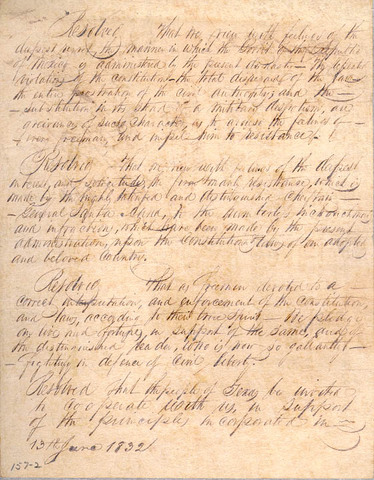 Resolved That we view with feelings of the
deepest interest, the manner in which the Govt of the Republic
of Mexico is administered by the present dynasty — The repeated
violations of the constitution — the total disregard of the law —
the entire prostration of the civil authority; and the —
— substitution in its stead of a military despotism, are
grievances of such character, as to arouse the feelings of —
— every freeman, and impel him to resistance —
Resolved That we view with feelings of the deepest
interest, and solicitude, the firm and manly resistance, which is
made by the highly talented and distinguished Chieftain —
— General Santa Anna, to the numberless
and infractions, which have been made by the present
administration, upon the Constitution & laws of our adopted
and beloved Country.
Resolved That as freemen devoted to a —
correct interpretation, and enforcement of the Constitution,
and laws, according to their true Spirit — We pledge
our lives and fortunes, in support of the same, and of
the distinguished leader, who is now so gallantly —
— fighting in defence of Civil liberty.
Resolved That the people of Texas be invited
to cooperate with us, in support
of the principles incorporated in —
13th June 1832
157-2